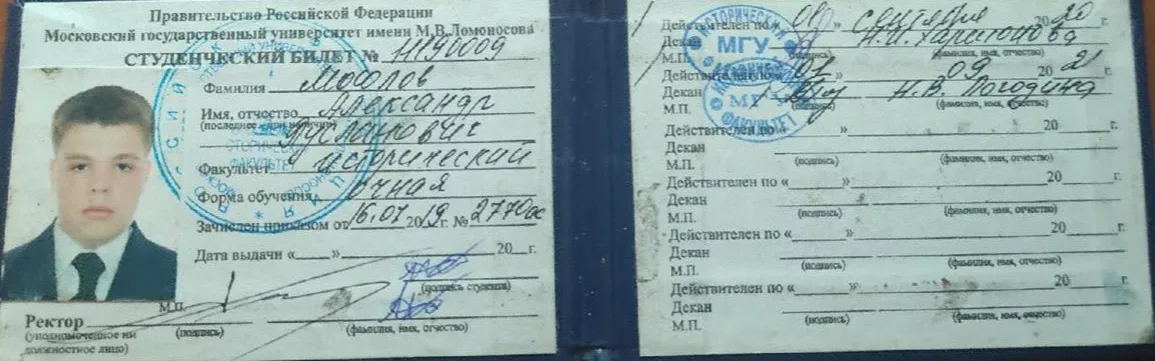 Правительство Российской Федерации
Московский государственный университет имени М.В.Ломоносова
СТУДЕНЧЕСКИЙ БИЛЕТ №
Фамилия
Имя, отчество Александр
(последнее - при наличии) Русланович
Факультет исторический
Форма обучения очная
Зачислен приказом от 16.07 2019г. №
Дата выдачи «___» 20__г.
(подпись студента)
М.П.
Ректор
(уполномоченное им должностное лицо)
(подпись)
(фамилия, имя, отчество)
Действителен по « 01 » сентября 2020
Декан Н.И. Харитонова
М.П. (фамилия, имя, отчество)
Действителен по « 01 » 09 2021
Декан Н.В. Погодина
М.П. (подпись) (фамилия, имя, отчество)
Действителен по «___» 20__г.
Декан
М.П. (подпись) (фамилия, имя, отчество)
Действителен по «___» 20__г.
Декан
М.П. (подпись) (фамилия, имя, отчество)
Действителен по «___» 20__г.
Декан
М.П. (подпись) (фамилия, имя, отчество)
Действителен по «___» 20__г.
Декан
М.П. (подпись) (фамилия, имя, отчество)
ИСТОРИЧЕСКИЙ
МГУ
ФАКУЛЬТЕТ